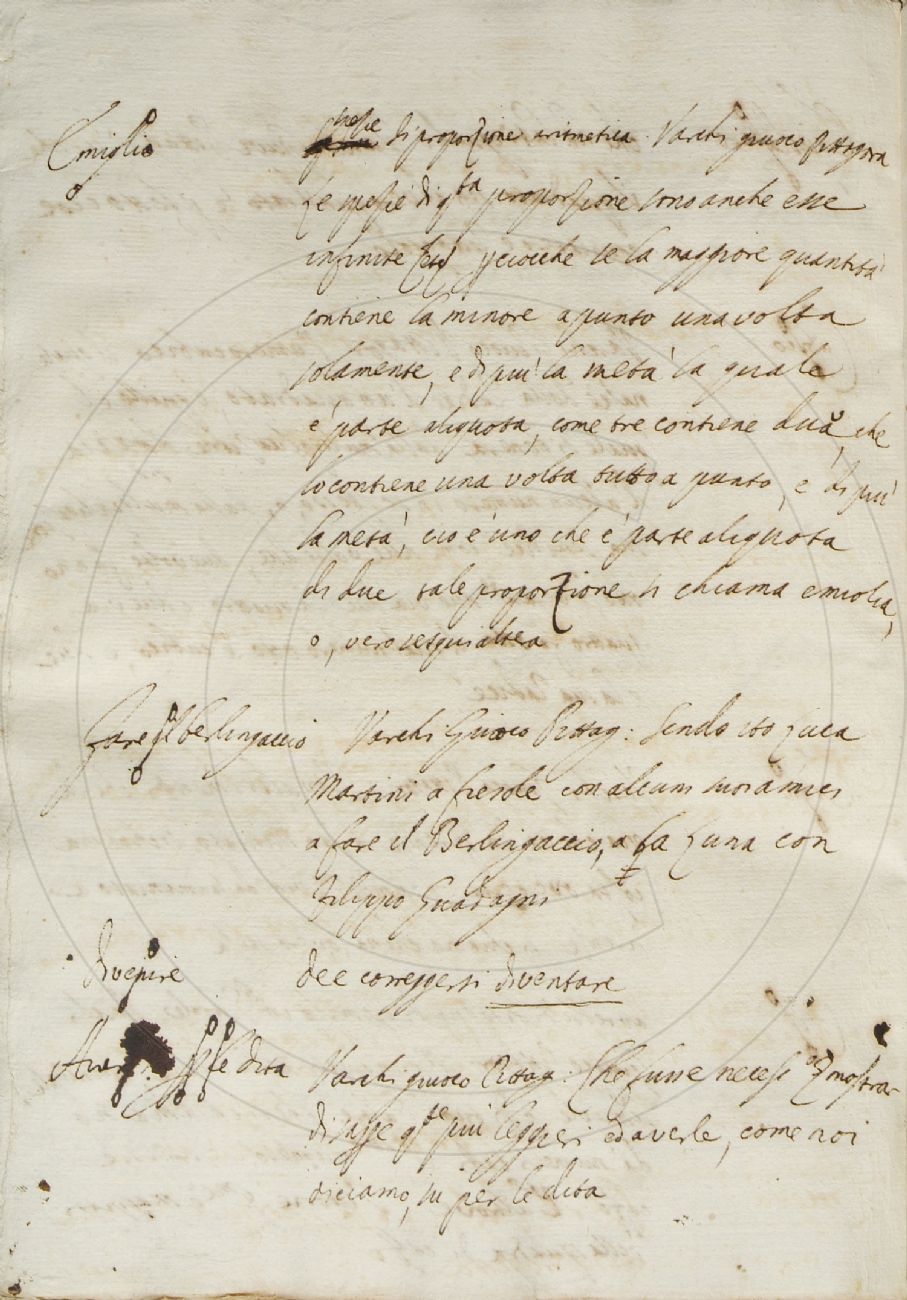 Emiglio
spezie di proporzione aritmetica. Varchi giuoco Pittagora
Le spezie di q.ta proporzione sono anche esse
infinite perciocche se la maggiore quantità
contiene la minore apunto una volta
solamente, e di più la metà la quale
è parte aliquota, come tre contiene dua, che
lo contiene una volta tutto a punto, e di più
la metà, cio è uno che è parte aliquota
di due tale proporzione si chiama emiolia,
o, vero sesquialtera
Fare il berlingaccio
Varchi Giuoco Pittag: Sendo ito Luca
Martini a fiesole con alcuni suoi amici
a fare il Berlingaccio, a la Luna con
Filippo Guadagni
Divenire
dee correggersi diventare
Aver per le dita
Varchi giuoco Pittag: Che fusse necess.o mostrar-
di sasse q.te più leggieri ed averle, come noi
diciamo, su per le dita